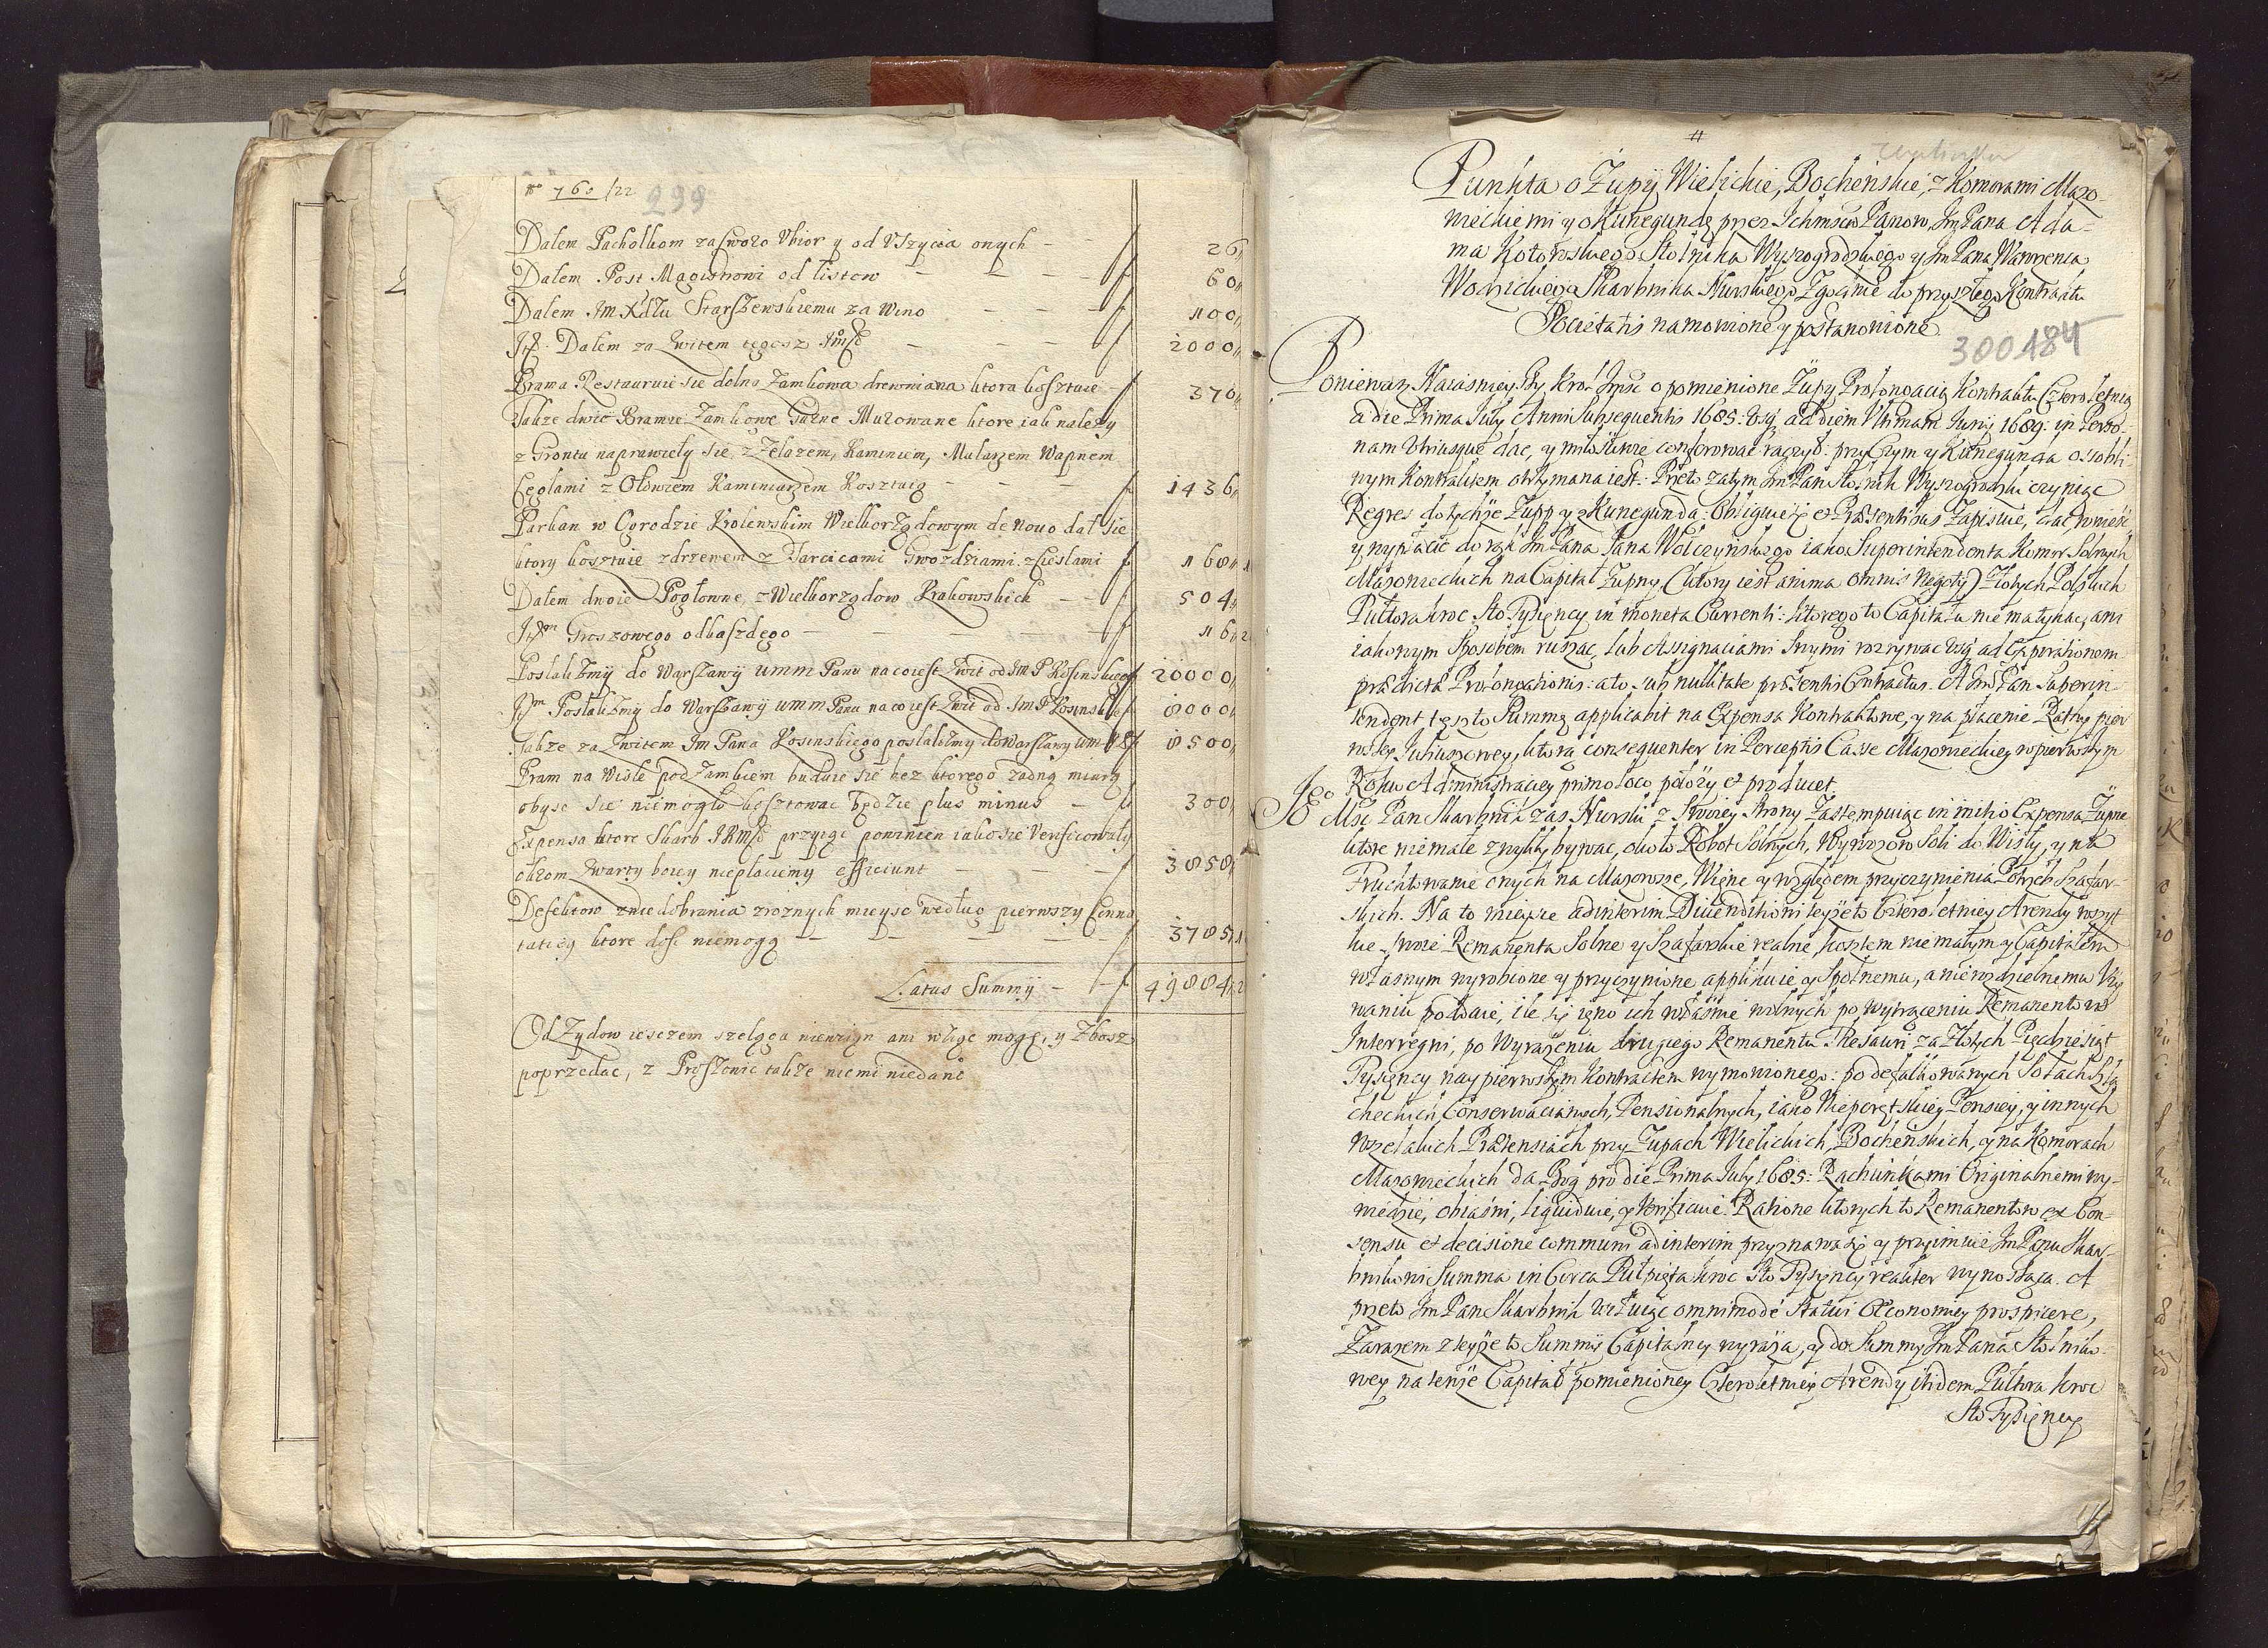 760/22
299
Dałem Pachołkom za swoio Ubior y od Uszycia onych — f 26
Dałem Post Magistrowi od listow — f 60
Dałem Jm Xdzu Starszewskiemu za Wino — f 100
Dałem za kwitem tegosz — f 2000
Brama Restauruie sie dolna Zamkowa drewniana ktora kosztuie — f 376
Także dwie Bramie Zamkowe Murowane ktore iak należy
z Grontu naprawieły sie, z Zelazem, Kamieniem, Mularzem Wapnem
Cegłami z Ołowiem Kamieniarzem Kosztuią — f 1436
Parkan w Ogrodzie Krolewskim Wielkorządowym de novo dał sie
ktory kosztuie z drzewem z Tarcicami Gwozdziami z Cieslami f 168
Dałem dwoie Pogłowne, z Wielkorządow Krakowskich — f 504
Groszowego od każdego — f 16
Posłaliźmy do Warszawy umm Panu na co iest kwit od Jm P Kosinskiego f 20000
Posłaliźmy do Warszawy umm Panu na co iest kwit od Jm P Kosinskie f 8000
Także za kwitem Jm Pana Kosinskiego posłaliźmy do Warszawy f 8500
Pram na Wisle pod Zamkiem buduie sie bez ktorego żadną miarą
obysc sie niemogło kosztowac będzie plus minus — f 300
Expensa ktore Skarb JKMsci przyiąc powinien iako sie Verificowały
okrom kwarty borey niepłaciemy efficiunt — f 3858
Defektow z niedobrania z roznych mieysc według pierwszy
ktore dosc niemogą — f 3785
Latus Summy — f 49884
Od Zydow ieszczem szelęga niewziyn ani wziąc mogę, y Zbosz
poprzedac, z Proszowic także niemi niedane
Punkta o Zupy Wielickie, Bochenskie, z Komorami Mazo-
wieckiemi y o Kunegundę przez Ichmsciow Panow, Jm Pana Ada-
ma Kotowskiego Stolnika Wyszogrodzkiego y Jm Pana Wawrzenca
Wodzickiego Skarbnika Nurskiego Zgodnie do przyszłego Kontraktu
Societatis namowione y postanowione
300 184
Ponieważ Naiasnieyszy Krol Jmsc o pomienione Zupy Prolongacią Kontraktu Cztero letnią
a die Prima July Anni Subsequentis 1685: Usq ad diem Ultimam Juny 1689: in Perso-
nam Utriusque dac, y miłościwie conferowac raczył: przy Czym y Kunegunda osobli-
wym Kontraktem otrzymana iest: Przeto zatym Jm Pan Stolnik Wyszogrodzki czyniąc
Regres do tychże Zupp y z Kunegundą, Obliguie się et Præsentibus zapisuie, dac, wniesc
y wypłacic do rąk Jm Pana Jana Wolczynskiego iako Superintendenta Komor Solnych
Mazowieckich na Capitał Zupny (ktory iest anima omnis Negoty) Złotych Polskich
Pułtora kroc Sto Tysięncy in moneta Currenti: ktorego to Capitału nie ma tykac, ani
iakowym Sposobem ruszac, lub Assignaciami Swymi rozrywac usq ad Expirationem
prædictæ Prolongationis: a to sub nullitate præsentis Contractus. A Jm Pan Superin-
tendent tęszto Summę applicabit na Expensa Kontraktowe, y na płacenie Ratty pier
wszey Juliuszowey, ktorą consequenter in Perceptis Cassæ Mazowieckiey w pierwszym
Roku Administraciey primo loco położy et producet.
Jego Msc Pan Skarbnik zas Nurski z Swoiey Strony Zastempuiąc in initio Expensa Zupne
ktore niemałe zwykły bywac, około Robot Solnych, Wywozow Soli do Wisły, y na
Fruchtowanie onych na Mazowsze, Więc y względem przyczynienia Potrzeb Szafar-
skich. Na to mieysce ad interim Divenditioni teyże to Czteroletniey Arendy wszyt
kie swoie Remanenta Solne y Szafarskie realne, kosztem nie małym y Capitałem
własnym wyrobione y przyczynione applikuie y Spolnemu, a nierozdzielnemu Uży
waniu poddaie, ile się iedno ich własnie wolnych po wytrąceniu Remanentow
Interregni, po Wyrażeniu drugiego Remanentu Thesauri za Złotych Pięcdziesiąt
Tysięncy nay pierwszym Kontraktem wymowionego: po defalkowanych Solach Szla
checkich, Conserwacianych, Pensionalnych, iako Nieporęt skiey Pensiey, y innych
wszelakich Prætensiach przy Zupach Wielickich, Bochenskich, y na Komorach
Mazowieckich da Bog pro die Prima July 1685: Rachunkami Originalnemi wy-
wiedzie, obiasni, liquiduie, y Verificuie. Ratione ktorych to Remanentow ex Con-
sensu et decisione communi ad interim przyznawa się y przyimuie Jm Panu Skar-
bnikowi Summa in Circa Pułpięta kroc Sto Tysięncy realiter wynosząca. A
przeto Jm Pan Skarbnik usiłuiąc omnimode Statui Œconomiey prospicere,
Zarazem z teyże to Summy Capitalney wyraża, y do Summy Jm Pana Stolniko
wey na tenże Capitał pomienioney Czteroletniey Arendy itidem Pułtora kroc
Sto Tysięncy